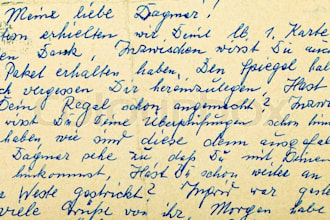 Meine liebe Dagmar!
erhielten wir Deine lb. 1. Karte
en Dank, Inzwischen wirst Du uns
Paket erhalten haben, Den Spiegel hab
ch vergessen Dir hereinzulegen, Hast
Dein Regal schon angemacht? Inzwi
wirst Du Deine Überprüfungen schon hin
haben, wie sind diese denn ausgefal
Dagmar sehe zu daß Du mit Deinem
hinkommst, Hast du schon weiter an
r Weste gestrickt? Ingrid war gest
viele Grüße von ihr, Morgen habe